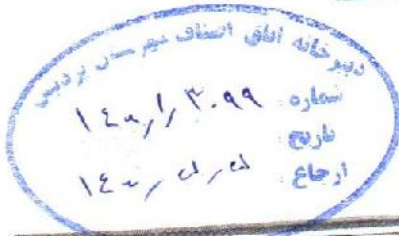 دبیرخانه اتاق اصناف شهرستان پردیس
شماره: ۱۴۰۰/ر/۳۰۹۹
تاریخ:
ارجاع: